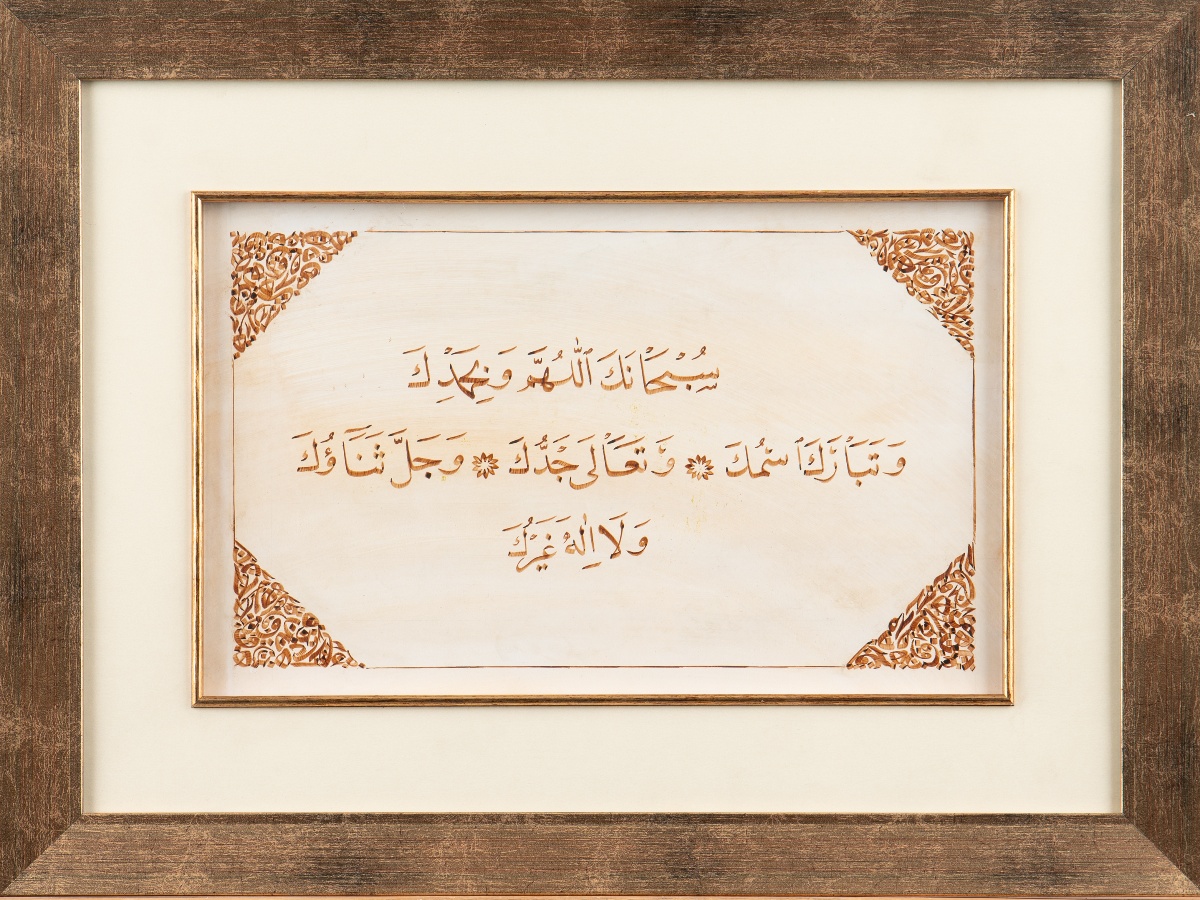 سُبْحَانَكَ ٱللّٰهُمَّ وَبِحَمْدِكَ
وَتَبَارَكَ ٱسْمُكَ ۞ وَتَعَالَى جَدُّكَ ۞ وَجَلَّ ثَنَاؤُكَ
وَلَا اِلٰهَ غَيْرُكَ